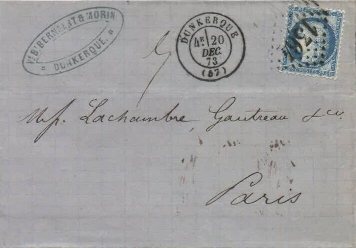 Vve Bt BERNAERT & MORIN
DUNKERQUE.
DUNKERQUE
4E 20
DEC.
73
(57)
Lachambre, Gautreau & Cie
Paris